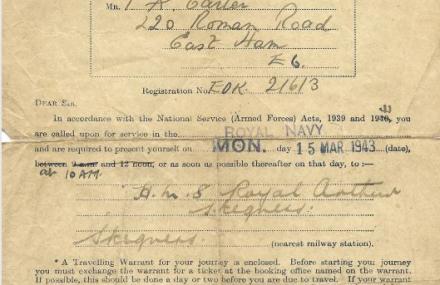 MR. R. Carter
220 Roman Road
East Ham
E6.
Registration No. EDK. 21613
DEAR SIR,
In accordance with the National Service (Armed Forces) Acts, 1939 and you
are called upon for service in the ROYAL NAVY
and are required to present yourself on MON. day 15 MAR 1943 (date),
between 9 a.m. and 12 noon, or as soon as possible thereafter on that day, to :—
at 10 AM.
H.M.S Royal Arthur
Skegness.
Skegness. (nearest railway station).
* A Travelling Warrant for your journey is enclosed. Before starting your journey
you must exchange the warrant for a ticket at the booking office named on the warrant.
If possible, this should be done a day or two before you are due to travel. If your warrant